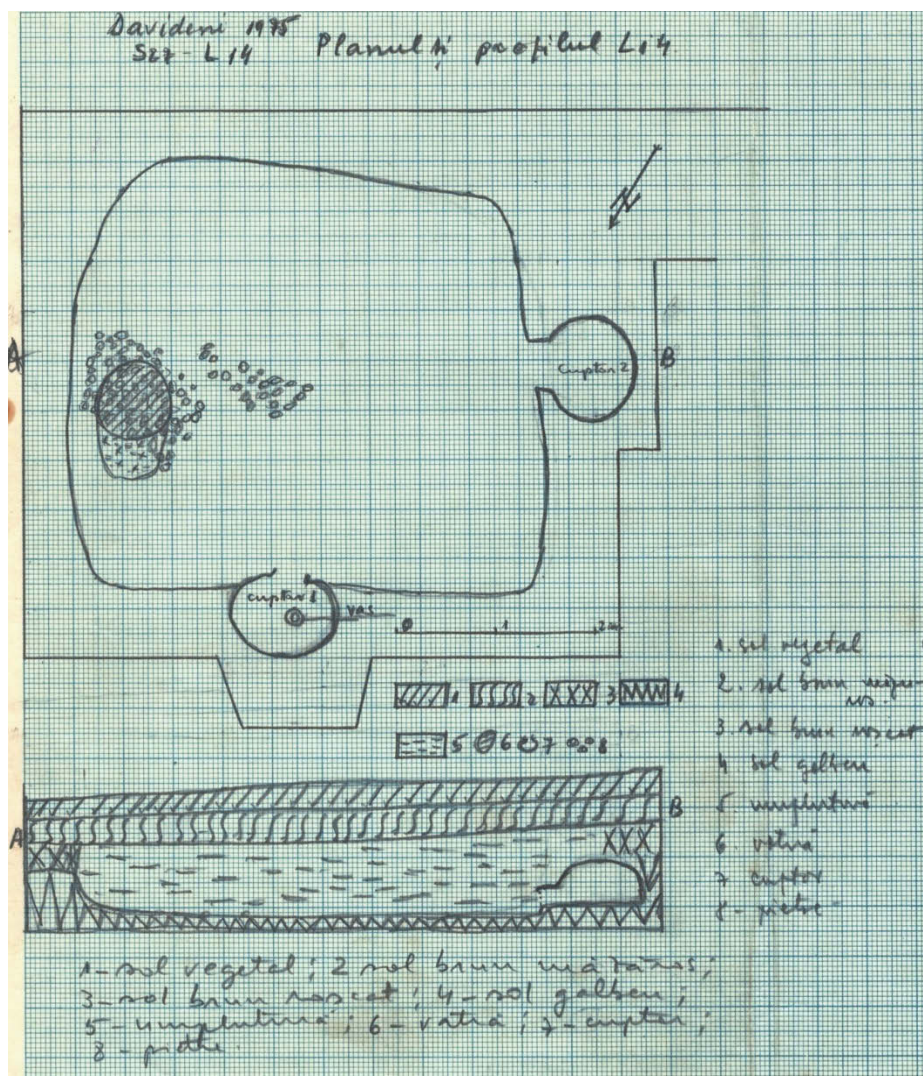 Davideni 1975
S27 - L14
Planul și profilul L14
A
B
cuptor 2
cuptor 1
vas
0 1 2m
1 2 3 4
5 6 7 8
1. sol vegetal
2. sol brun
3. sol brun roșcat
4 sol galben
5 umplutură
6. vatră
7 cuptor
8 - pietre
A
B
1 - sol vegetal; 2 sol brun măzăros;
3 - sol brun roșcat; 4 - sol galben;
5 - umplutură; 6 - vatră; 7 - cuptor;
8 - pietre.